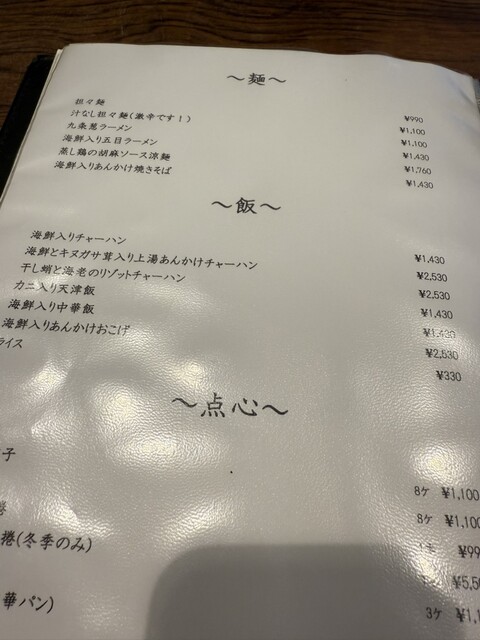 ～麺～
担々麺 ¥990
汁なし担々麺(激辛です！) ¥1,100
九条葱ラーメン ¥1,100
海鮮入り五目ラーメン ¥1,430
蒸し鶏の胡麻ソース涼麺 ¥1,760
海鮮入りあんかけ焼きそば ¥1,430
～飯～
海鮮入りチャーハン ¥1,430
海鮮とキヌガサ茸入り上湯あんかけチャーハン ¥2,530
干し蛸と海老のリゾットチャーハン ¥2,530
カニ入り天津飯 ¥1,430
海鮮入り中華飯 ¥1,430
海鮮入りあんかけおこげ ¥2,530
ライス ¥330
～点心～
子 8ケ ¥1,100
捲 8ケ ¥1,100
捲(冬季のみ)
華パン) 3ケ